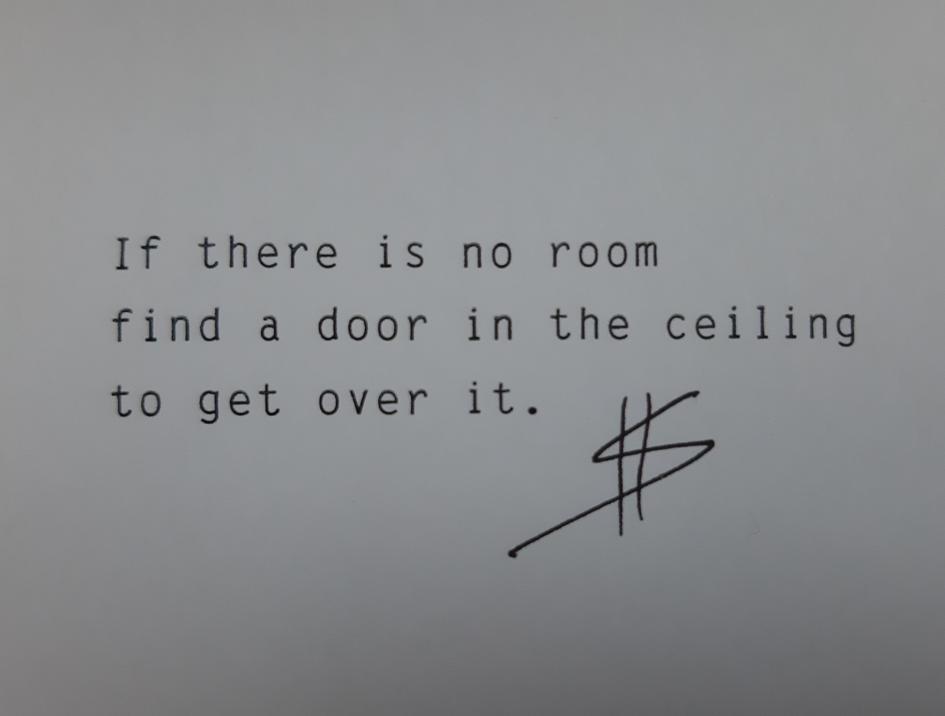 If there is no room
find a door in the ceiling
to get over it.
$